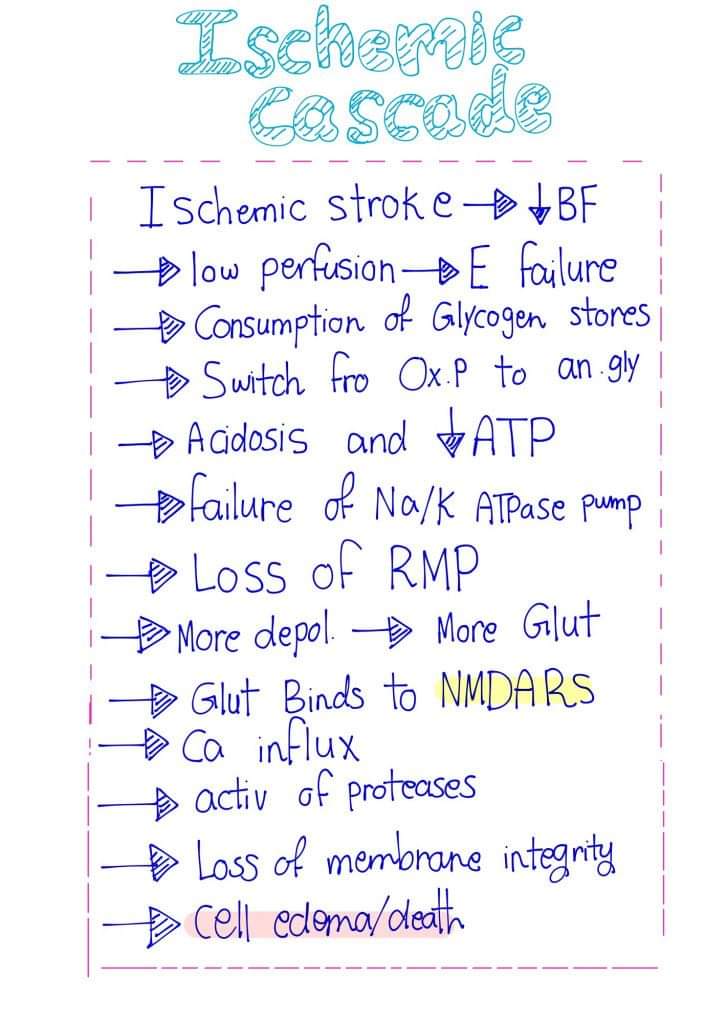 Ischemic
Cascade
Ischemic stroke → ↓BF
→ low perfusion → E failure
→ Consumption of Glycogen stores
→ Switch fro Ox.P to an.gly
→ Acidosis and ↓ATP
→ failure of Na/K ATPase pump
→ Loss of RMP
→ More depol. → More Glut
→ Glut Binds to NMDARS
→ Ca influx
→ activ of proteases
→ Loss of membrane integrity
→ Cell edema/death